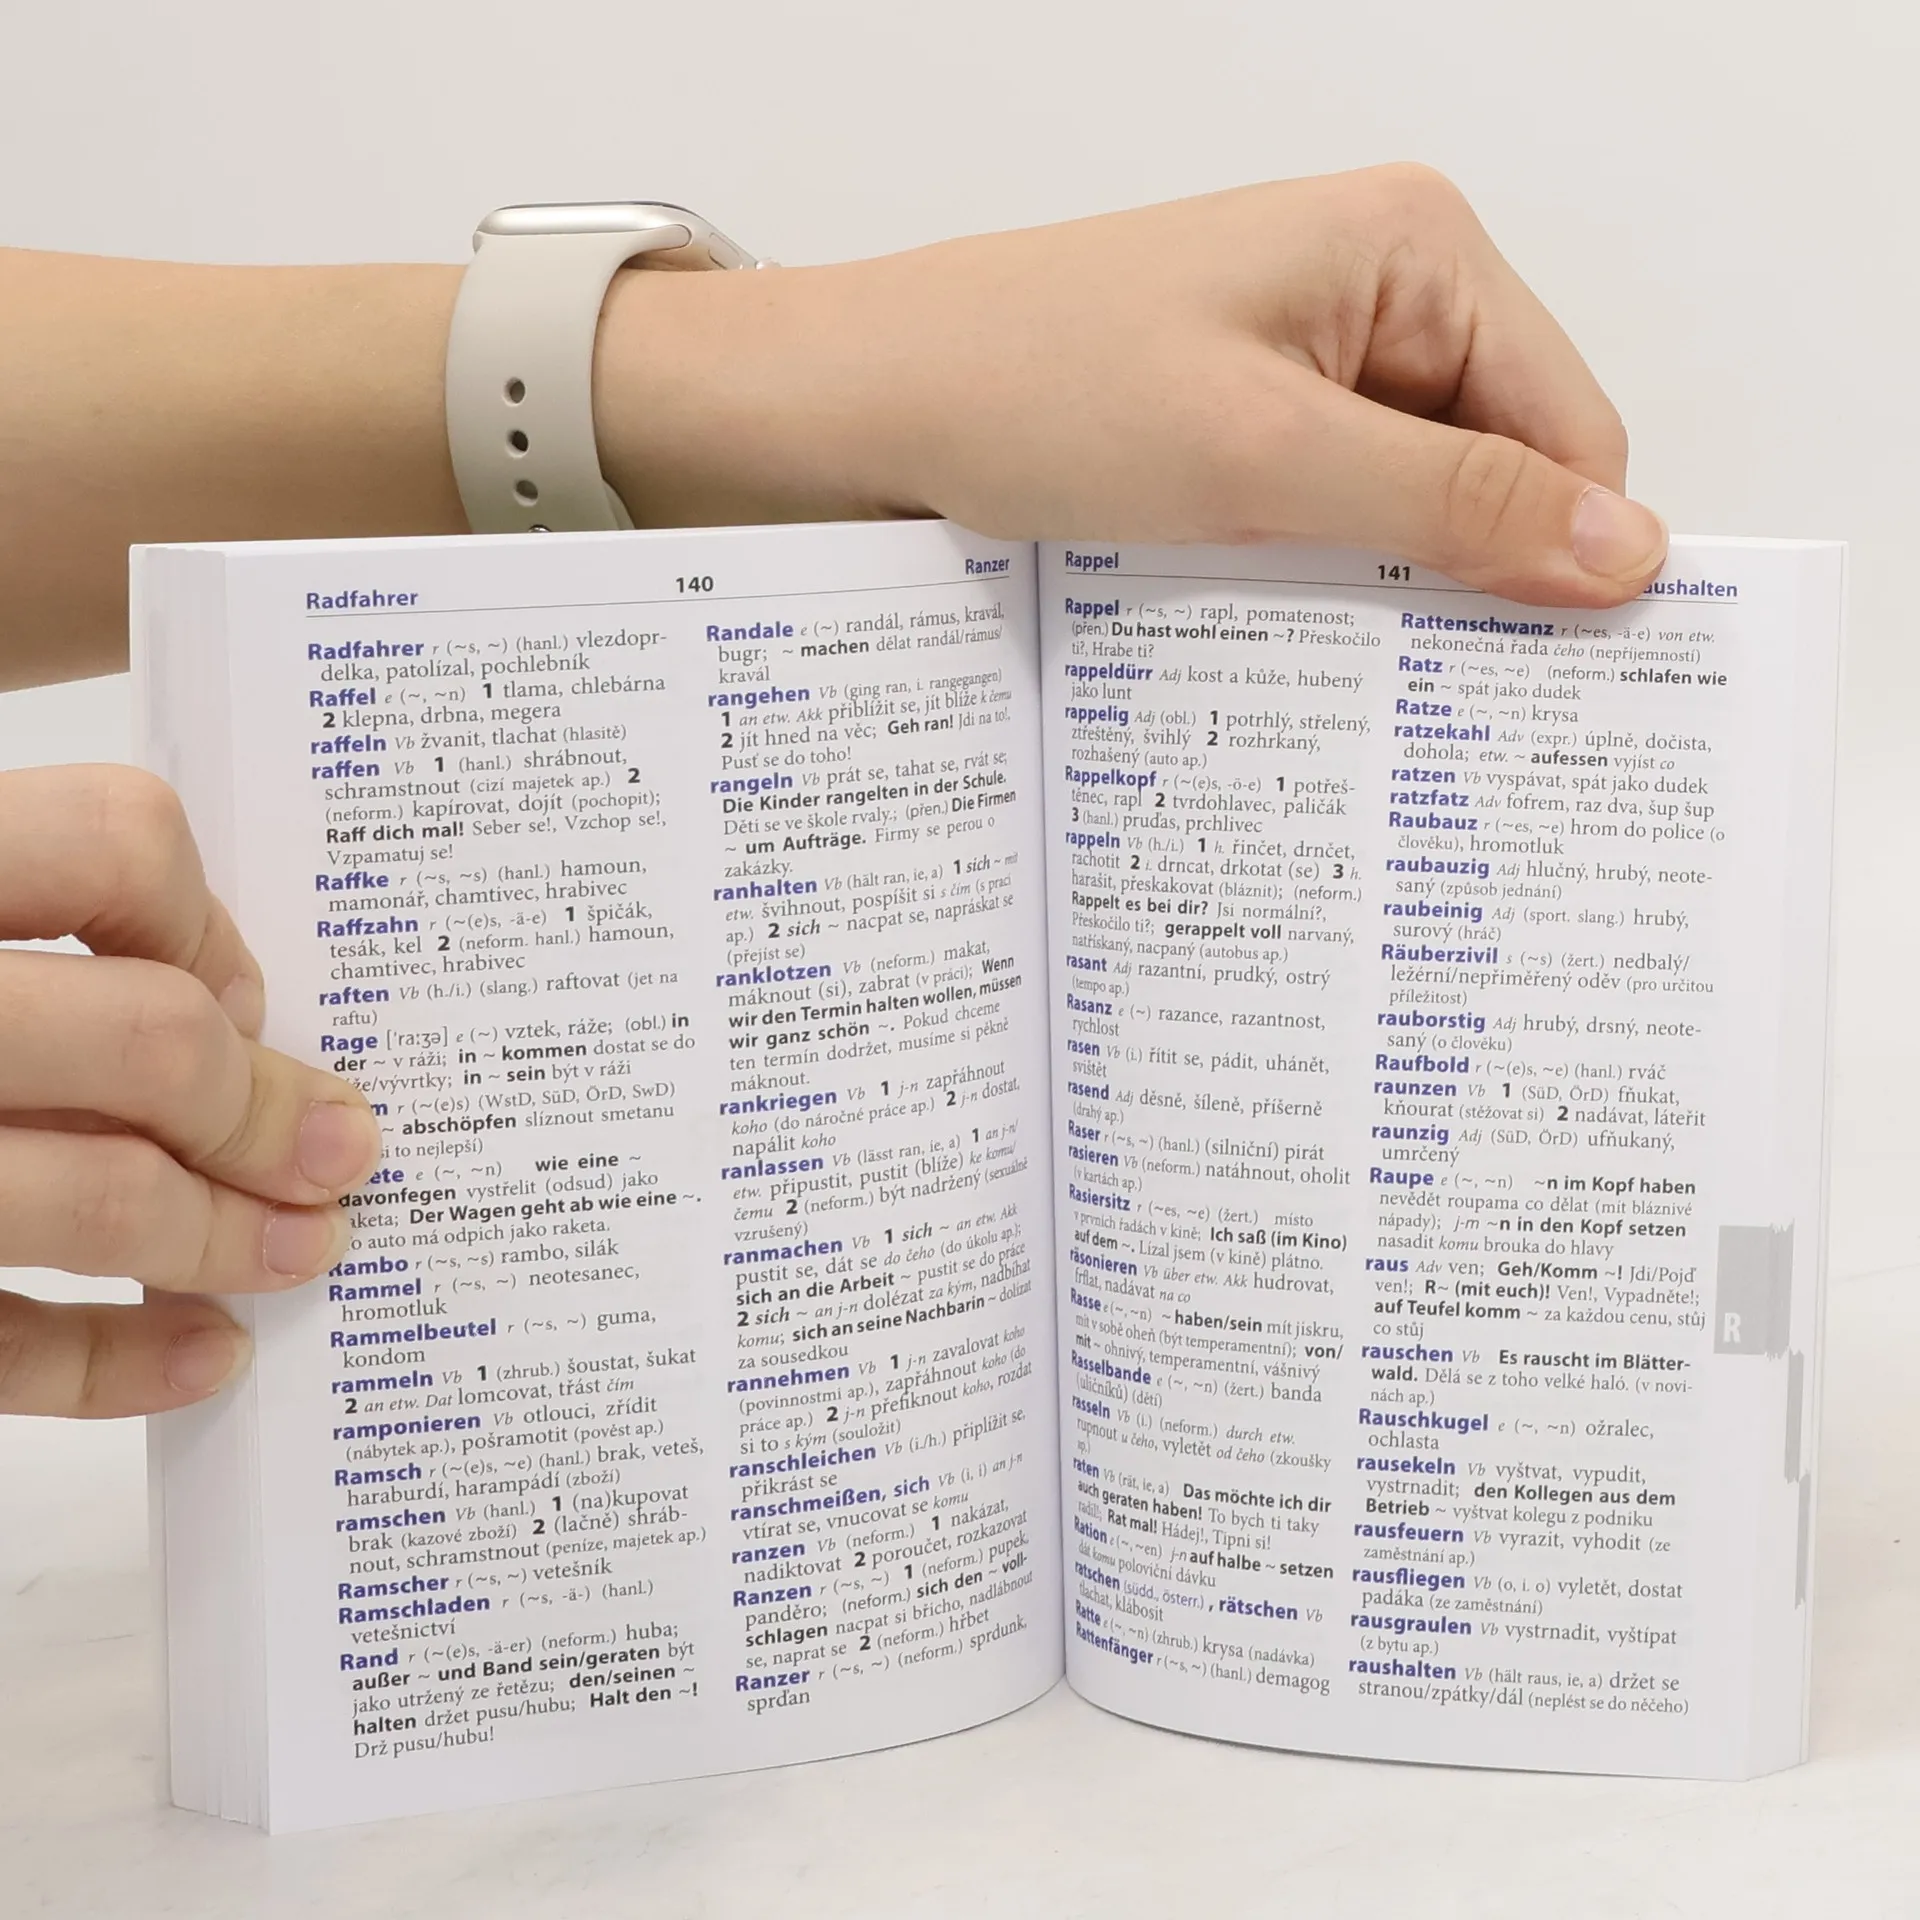 Radfahrer
140
Ranzer
Radfahrer r (~s, ~) (hanl.) vlezdopr-
delka, patolízal, pochlebník
Raffel e (~, ~n) 1 tlama, chlebárna
2 klepna, drbna, megera
raffeln Vb žvanit, tlachat (hlasitě)
raffen Vb 1 (hanl.) shrábnout,
schramstnout (cizí majetek ap.) 2
(neform.) kapírovat, dojít (pochopit);
Raff dich mal! Seber se!, Vzchop se!,
Vzpamatuj se!
Raffke r (~s, ~s) (hanl.) hamoun,
mamonář, chamtivec, hrabivec
Raffzahn r (~(e)s, -ä-e) 1 špičák,
tesák, kel 2 (neform. hanl.) hamoun,
chamtivec, hrabivec
raften Vb (h./i.) (slang.) raftovat (jet na
raftu)
Rage ['ra:ʒə] e (~) vztek, ráže; (obl.) in
der ~ v ráži; in ~ kommen dostat se do
že/vývrtky; in ~ sein být v ráži
m r (~(e)s) (WstD, SüD, ÖrD, SwD)
~ abschöpfen slíznout smetanu
si to nejlepší)
ete e (~, ~n) wie eine ~
davonfegen vystřelit (odsud) jako
aketa; Der Wagen geht ab wie eine ~.
o auto má odpich jako raketa.
Rambo r (~s, ~s) rambo, silák
Rammel r (~s, ~) neotesanec,
hromotluk
Rammelbeutel r (~s, ~) guma,
kondom
rammeln Vb 1 (zhrub.) šoustat, šukat
2 an etw. Dat lomcovat, třást čím
ramponieren Vb otlouci, zřídit
(nábytek ap.), pošramotit (pověst ap.)
Ramsch r (~(e)s, ~e) (hanl.) brak, veteš,
haraburdí, harampádí (zboží)
ramschen Vb (hanl.) 1 (na)kupovat
brak (kazové zboží) 2 (lačně) shráb-
nout, schramstnout (peníze, majetek ap.)
Ramscher r (~s, ~) vetešník
Ramschladen r (~s, -ä-) (hanl.)
vetešnictví
Rand r (~(e)s, -ä-er) (neform.) huba;
außer ~ und Band sein/geraten být
jako utržený ze řetězu; den/seinen ~
halten držet pusu/hubu; Halt den ~!
Drž pusu/hubu!
Randale e (~) randál, rámus, kravál,
bugr; ~ machen dělat randál/rámus/
kravál
rangehen Vb (ging ran, i. rangegangen)
1 an etw. Akk přiblížit se, jít blíže k čemu
2 jít hned na věc; Geh ran! Jdi na to!,
Pusť se do toho!
rangeln Vb prát se, tahat se, rvát se;
Die Kinder rangelten in der Schule.
Děti se ve škole rvaly.; (přen.) Die Firmen
~ um Aufträge. Firmy se perou o
zakázky.
ranhalten Vb (hält ran, ie, a) 1 sich ~ mit
etw. švihnout, pospíšit si s čím (s prací
ap.) 2 sich ~ nacpat se, napráskat se
(přejíst se)
ranklotzen Vb (neform.) makat,
máknout (si), zabrat (v práci); Wenn
wir den Termin halten wollen, müssen
wir ganz schön ~. Pokud chceme
ten termín dodržet, musíme si pěkně
máknout.
rankriegen Vb 1 j-n zapřáhnout
koho (do náročné práce ap.) 2 j-n dostat,
napálit koho
ranlassen Vb (lässt ran, ie, a) 1 an j-n/
etw. připustit, pustit (blíže) ke komu/
čemu 2 (neform.) být nadržený (sexuálně
vzrušený)
ranmachen Vb 1 sich ~ an etw. Akk
pustit se, dát se do čeho (do úkolu ap.);
sich an die Arbeit ~ pustit se do práce
2 sich ~ an j-n dolézat za kým, nadbíhat
komu; sich an seine Nachbarin ~ dolízat
za sousedkou
rannehmen Vb 1 j-n zavalovat koho
(povinnostmi ap.), zapřáhnout koho (do
práce ap.) 2 j-n přefiknout koho, rozdat
si to s kým (souložit)
ranschleichen Vb (i./h.) připlížit se,
přikrást se
ranschmeißen, sich Vb (i, i) an j-n
vtírat se, vnucovat se komu
ranzen Vb (neform.) 1 nakázat,
nadiktovat 2 poroučet, rozkazovat
Ranzen r (~s, ~) 1 (neform.) pupek,
panděro; (neform.) sich den ~ voll-
schlagen nacpat si břicho, nadlábnout
se, naprat se 2 (neform.) hřbet
Ranzer r (~s, ~) (neform.) sprdunk,
sprďan
Rappel
141
aushalten
Rappel r (~s, ~) rapl, pomatenost;
(přen.) Du hast wohl einen ~? Přeskočilo
ti?, Hrabe ti?
rappeldürr Adj kost a kůže, hubený
jako lunt
rappelig Adj (obl.) 1 potrhlý, střelený,
ztřeštěný, švihlý 2 rozhrkaný,
rozhašený (auto ap.)
Rappelkopf r (~(e)s, -ö-e) 1 potřeš-
těnec, rapl 2 tvrdohlavec, paličák
3 (hanl.) pruďas, prchlivec
rappeln Vb (h./i.) 1 h. řinčet, drnčet,
rachotit 2 i. drncat, drkotat (se) 3 h.
harašit, přeskakovat (bláznit); (neform.)
Rappelt es bei dir? Jsi normální?,
Přeskočilo ti?; gerappelt voll narvaný,
natřískaný, nacpaný (autobus ap.)
rasant Adj razantní, prudký, ostrý
(tempo ap.)
Rasanz e (~) razance, razantnost,
rychlost
rasen Vb (i.) řítit se, pádit, uhánět,
svištět
rasend Adj děsně, šíleně, příšerně
(drahý ap.)
Raser r (~s, ~) (hanl.) (silniční) pirát
rasieren Vb (neform.) natáhnout, oholit
(v kartách ap.)
Rasiersitz r (~es, ~e) (žert.) místo
v prvních řadách v kině; Ich saß (im Kino)
auf dem ~. Lízal jsem (v kině) plátno.
räsonieren Vb über etw. Akk hudrovat,
frflat, nadávat na co
Rasse e (~, ~n) ~ haben/sein mít jiskru,
mít v sobě oheň (být temperamentní); von/
mit ~ ohnivý, temperamentní, vášnivý
Rasselbande e (~, ~n) (žert.) banda
(uličníků) (dětí)
rasseln Vb (i.) (neform.) durch etw.
rupnout u čeho, vyletět od čeho (zkoušky
ap.)
raten Vb (rät, ie, a) Das möchte ich dir
auch geraten haben! To bych ti taky
radil!; Rat mal! Hádej!, Tipni si!
Ration e (~, ~en) j-n auf halbe ~ setzen
dát komu poloviční dávku
ratschen (südd., österr.), rätschen Vb
tlachat, klábosit
Ratte e (~, ~n) (zhrub.) krysa (nadávka)
Rattenfänger r (~s, ~) (hanl.) demagog
Rattenschwanz r (~es, -ä-e) von etw.
nekonečná řada čeho (nepříjemností)
Ratz r (~es, ~e) (neform.) schlafen wie
ein ~ spát jako dudek
Ratze e (~, ~n) krysa
ratzekahl Adv (expr.) úplně, dočista,
dohola; etw. ~ aufessen vyjíst co
ratzen Vb vyspávat, spát jako dudek
ratzfatz Adv fofrem, raz dva, šup šup
Raubauz r (~es, ~e) hrom do police (o
člověku), hromotluk
raubauzig Adj hlučný, hrubý, neote-
saný (způsob jednání)
raubeinig Adj (sport. slang.) hrubý,
surový (hráč)
Räuberzivil s (~s) (žert.) nedbalý/
ležérní/nepřiměřený oděv (pro určitou
příležitost)
rauborstig Adj hrubý, drsný, neote-
saný (o člověku)
Raufbold r (~(e)s, ~e) (hanl.) rváč
raunzen Vb 1 (SüD, ÖrD) fňukat,
kňourat (stěžovat si) 2 nadávat, láteřit
raunzig Adj (SüD, ÖrD) ufňukaný,
umrčený
Raupe e (~, ~n) ~n im Kopf haben
nevědět roupama co dělat (mít bláznivé
nápady); j-m ~n in den Kopf setzen
nasadit komu brouka do hlavy
raus Adv ven; Geh/Komm ~! Jdi/Pojď
ven!; R~ (mit euch)! Ven!, Vypadněte!;
auf Teufel komm ~ za každou cenu, stůj
co stůj
rauschen Vb Es rauscht im Blätter-
wald. Dělá se z toho velké haló. (v novi-
nách ap.)
Rauschkugel e (~, ~n) ožralec,
ochlasta
rausekeln Vb vyštvat, vypudit,
vystrnadit; den Kollegen aus dem
Betrieb ~ vyštvat kolegu z podniku
rausfeuern Vb vyrazit, vyhodit (ze
zaměstnání ap.)
rausfliegen Vb (o, i. o) vyletět, dostat
padáka (ze zaměstnání)
rausgraulen Vb vystrnadit, vyštípat
(z bytu ap.)
raushalten Vb (hält raus, ie, a) držet se
stranou/zpátky/dál (neplést se do něčeho)
R